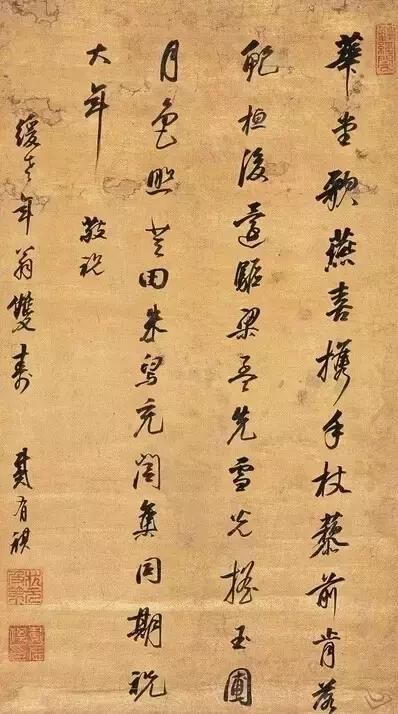 華堂歌燕喜攜手杖藜前肯落
鮑桓後還驅梁孟先雪光搖玉圃
月色照芝田朱舄充閭集同期祝
大年 敬祝
老年翁雙壽 戴有祺